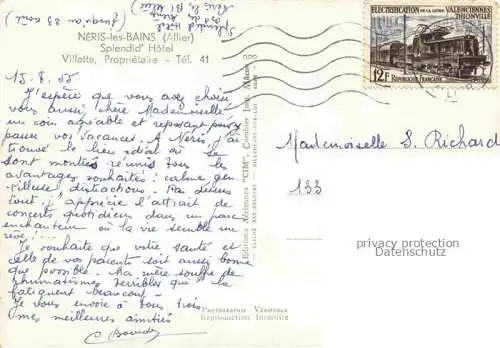 NÉRIS-les-BAINS (Allier)
Splendid' Hôtel
Villette, Propriétaire - Tél. 41
Splendid Hôtel
Néris les Bains Allier
(Jusqu'au 29 août)
15.8.55
J'espère que vous avez choisi
vous aussi, chère Mademoiselle
un coin agréable et reposant pour
passer vos vacances. A Néris, j'ai
trouvé le lieu idéal où se
sont montrés réunis tous les
avantages souhaités : calme, gen-
-tilles distractions. Par dessus
tout, j'apprécie l'attrait de
concerts quotidiens dans un parc
enchanteur où la vie semble un
rêve...
Je souhaite que votre santé et
celle de vos parents soit aussi bonne
que possible. Ma mère souffre de
rhumatismes terribles qui la
fatiguent beaucoup.
Je vous envoie à tous trois
mes meilleures amitiés
Editions Aériennes "CIM", Combier Imp. Mâcon
PHOTOGRAPHIE VÉRITABLE
Reproduction Interdite
ELECTRIFICATION DE LA LIGNE VALENCIENNES
THIONVILLE
12F RÉPUBLIQUE FRANÇAISE
POSTES
Mademoiselle S. Richard
133
privacy protection
Datenschutz